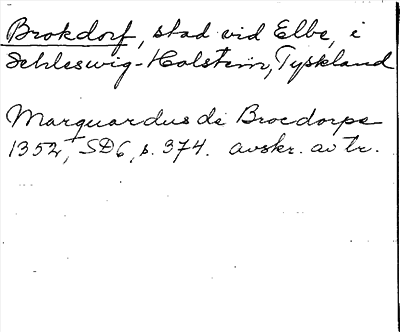 Brokdorf, stad vid Elbe, i
Schleswig-Holstein, Tyskland
Marquardus de Brocdorpe
1352, SD6, s. 374. avskr. av tr.